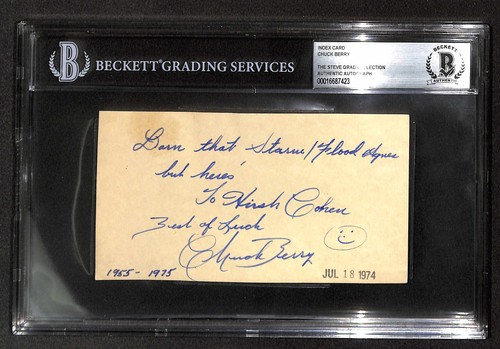 B
BECKETT GRADING SERVICES
INDEX CARD
CHUCK BERRY
THE STEVE GRAD COLLECTION
AUTHENTIC AUTOGRAPH
00016687423
BECKETT
B
AUTHENTIC
Darn that Starve/Flood Agnes
but heres'
To Hirsh Cohen
Best of Luck
Chuck Berry
1955-1975
JUL 18 1974